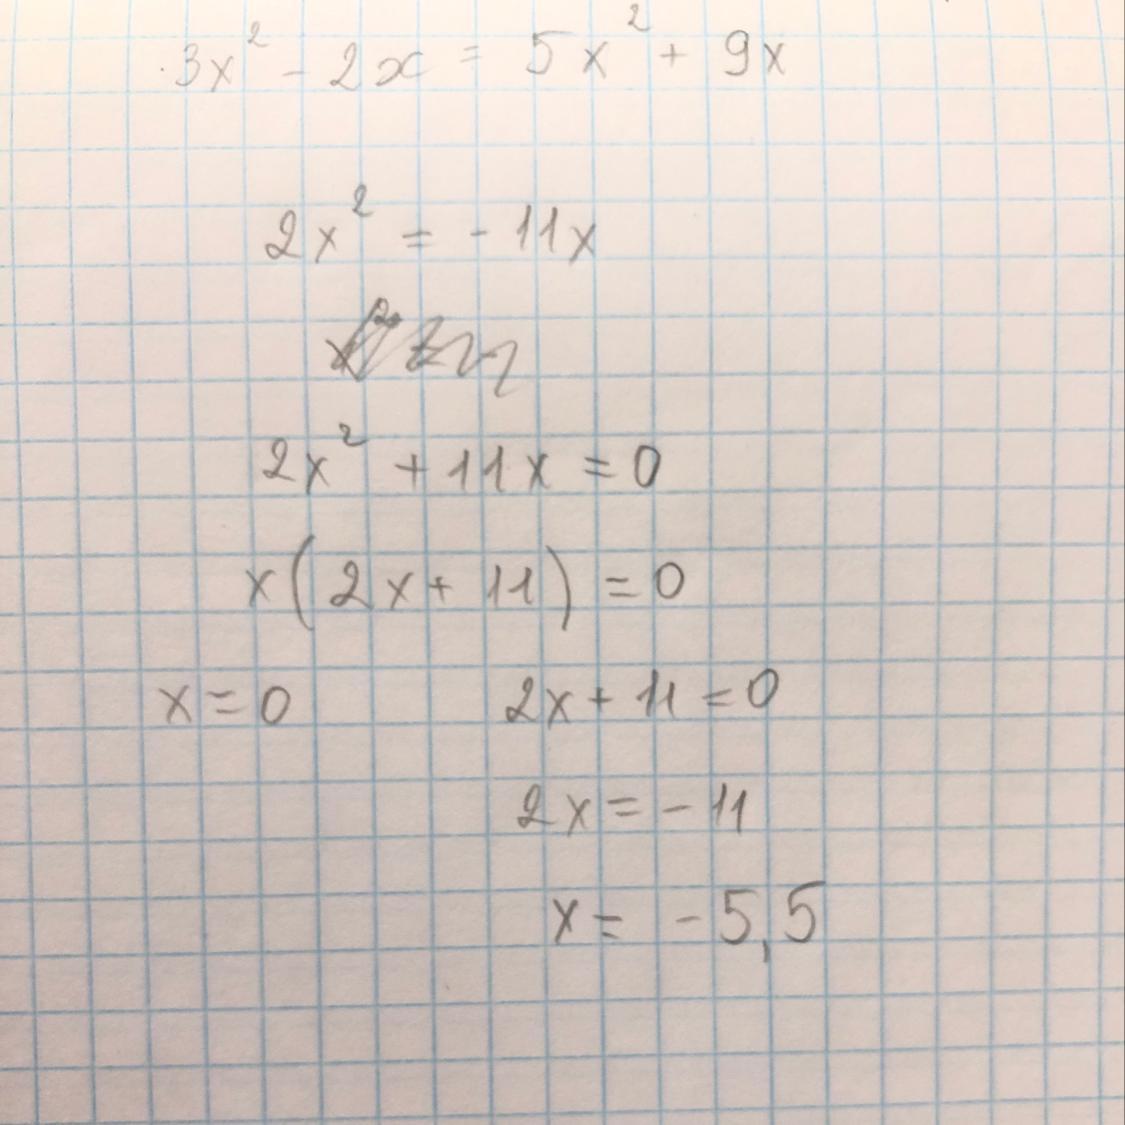 3x² - 2x = 5x² + 9x
2x² = - 11x
2x² + 11x = 0
x(2x + 11) = 0
x = 0 2x + 11 = 0
2x = - 11
x = - 5,5